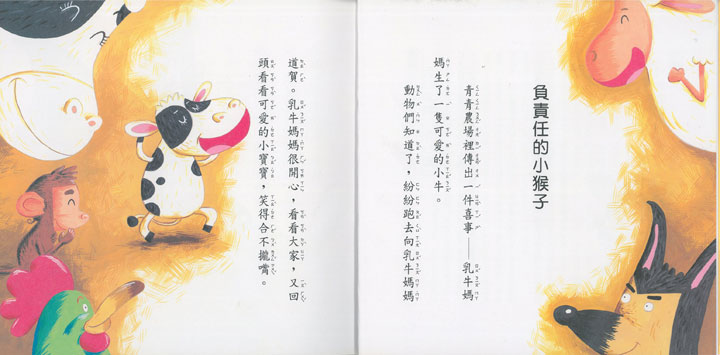 負責任的小猴子
青青農場裡傳出一件喜事──乳牛媽
媽生了一隻可愛的小牛。
動物們知道了，紛紛跑去向乳牛媽媽
道賀。乳牛媽媽很開心，看看大家，又回
頭看看可愛的小寶寶，笑得合不攏嘴。